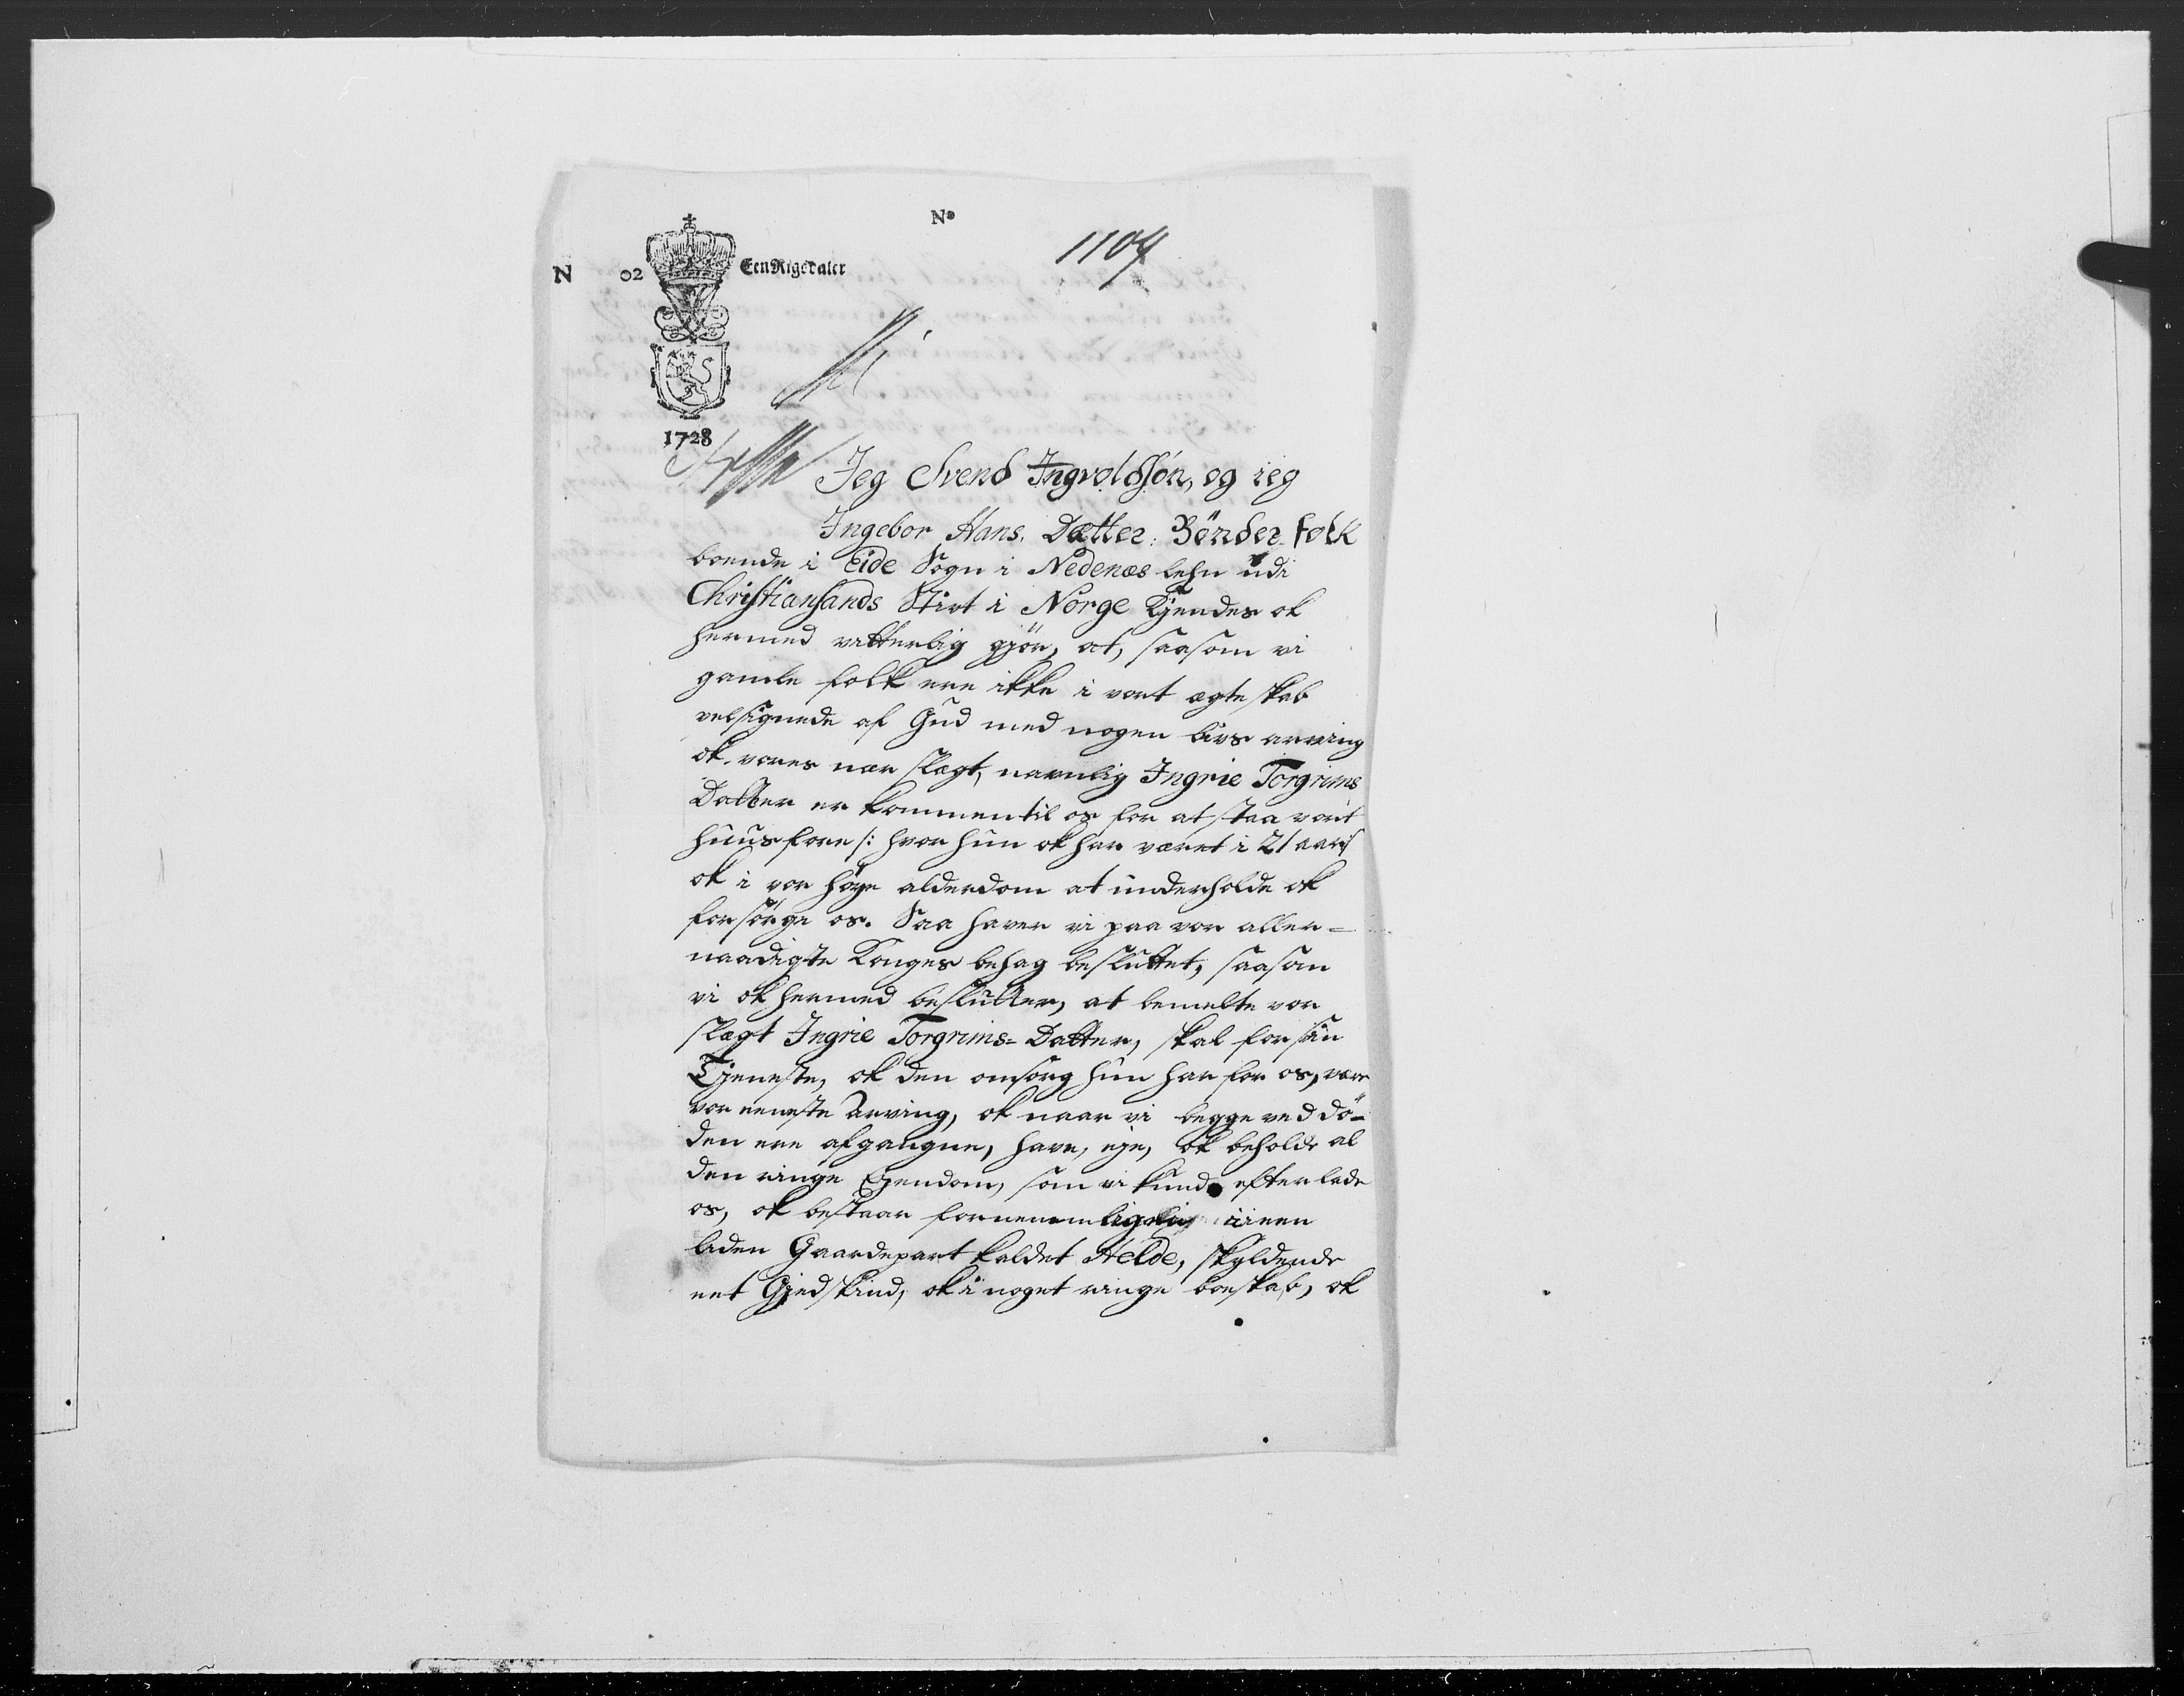 No
1104
N 02 Een Rigsdaler
1728
Jeg Svend Ingvoldsön, og ieg
Ingebor Hans. Datter: Bönder folk
boende i Eide Sogn i Nedenæs lehn udi
Christiansands Stivt i Norge Kjendes ok
hermed vitterlig gjör, at, saasom vi
gamle folk ere ikke i vort ægteskab
velsignede af Gud med nogen livs arving
ok vores nær slægt, navnlig Ingrie Torgrims
Datter er kommen til os for at staa vort
huus fore /: hvor hun ok har været i 21 aar :/
ok i vor høye alderdom at underholde ok
forsörge os. Saa haver vi paa vor aller=
naadigste Konges behag besluttet, saasom
vi ok hermed beslutter, at bemelte vor
slægt Ingrie Torgrims= Datter, skal for sin
Tjeneste, ok den omsorg hun har for os, være
vor eeneste Arving, ok naar vi begge ved dö=
den ere afgangne, have, eje, ok beholde al
den ringe Ejendom, som vi kunde efterlade
os, ok bestaar fornemmelig i een
liden Gaardepart kaldet Helde, skyldende
eet Gjedskind, ok i noget ringe boeskab, ok